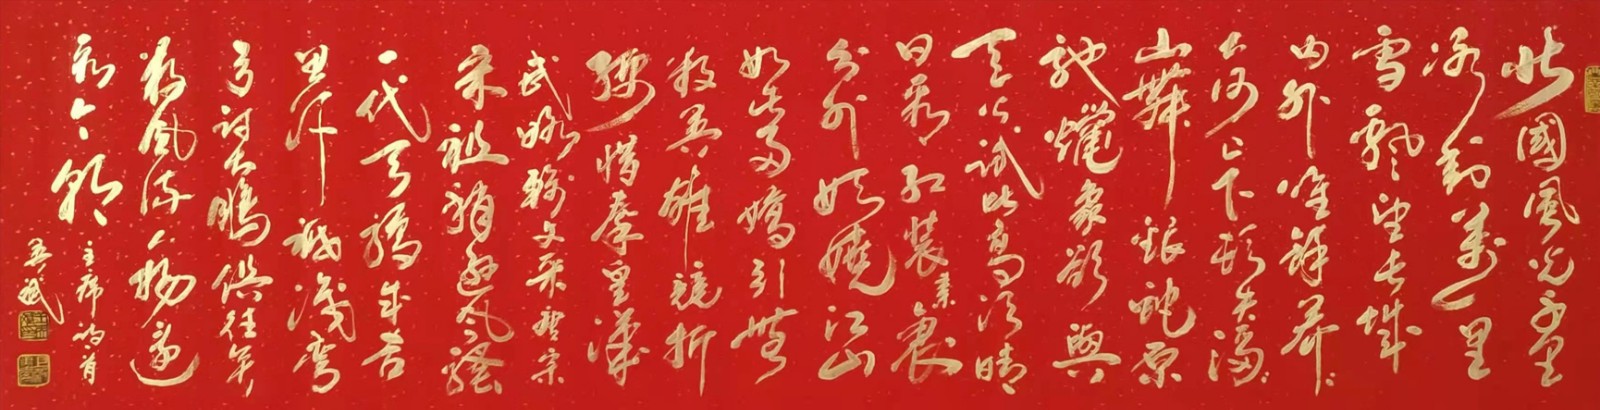 北國風光千里
冰封萬里
雪飄望長城
內外唯餘莽々
大河上下頓失滔々
山舞銀蛇原
馳蠟象欲與
天公試比高須晴
日看紅裝素裹
分外妖嬈江山
如此多嬌引無
數英雄競折
腰惜秦皇漢
武略輸文采唐宗
宋祖稍遜風騷
一代天驕成吉
思汗祇識彎
弓射大鵰俱往矣
數風流人物還
看今朝
主席詞一首